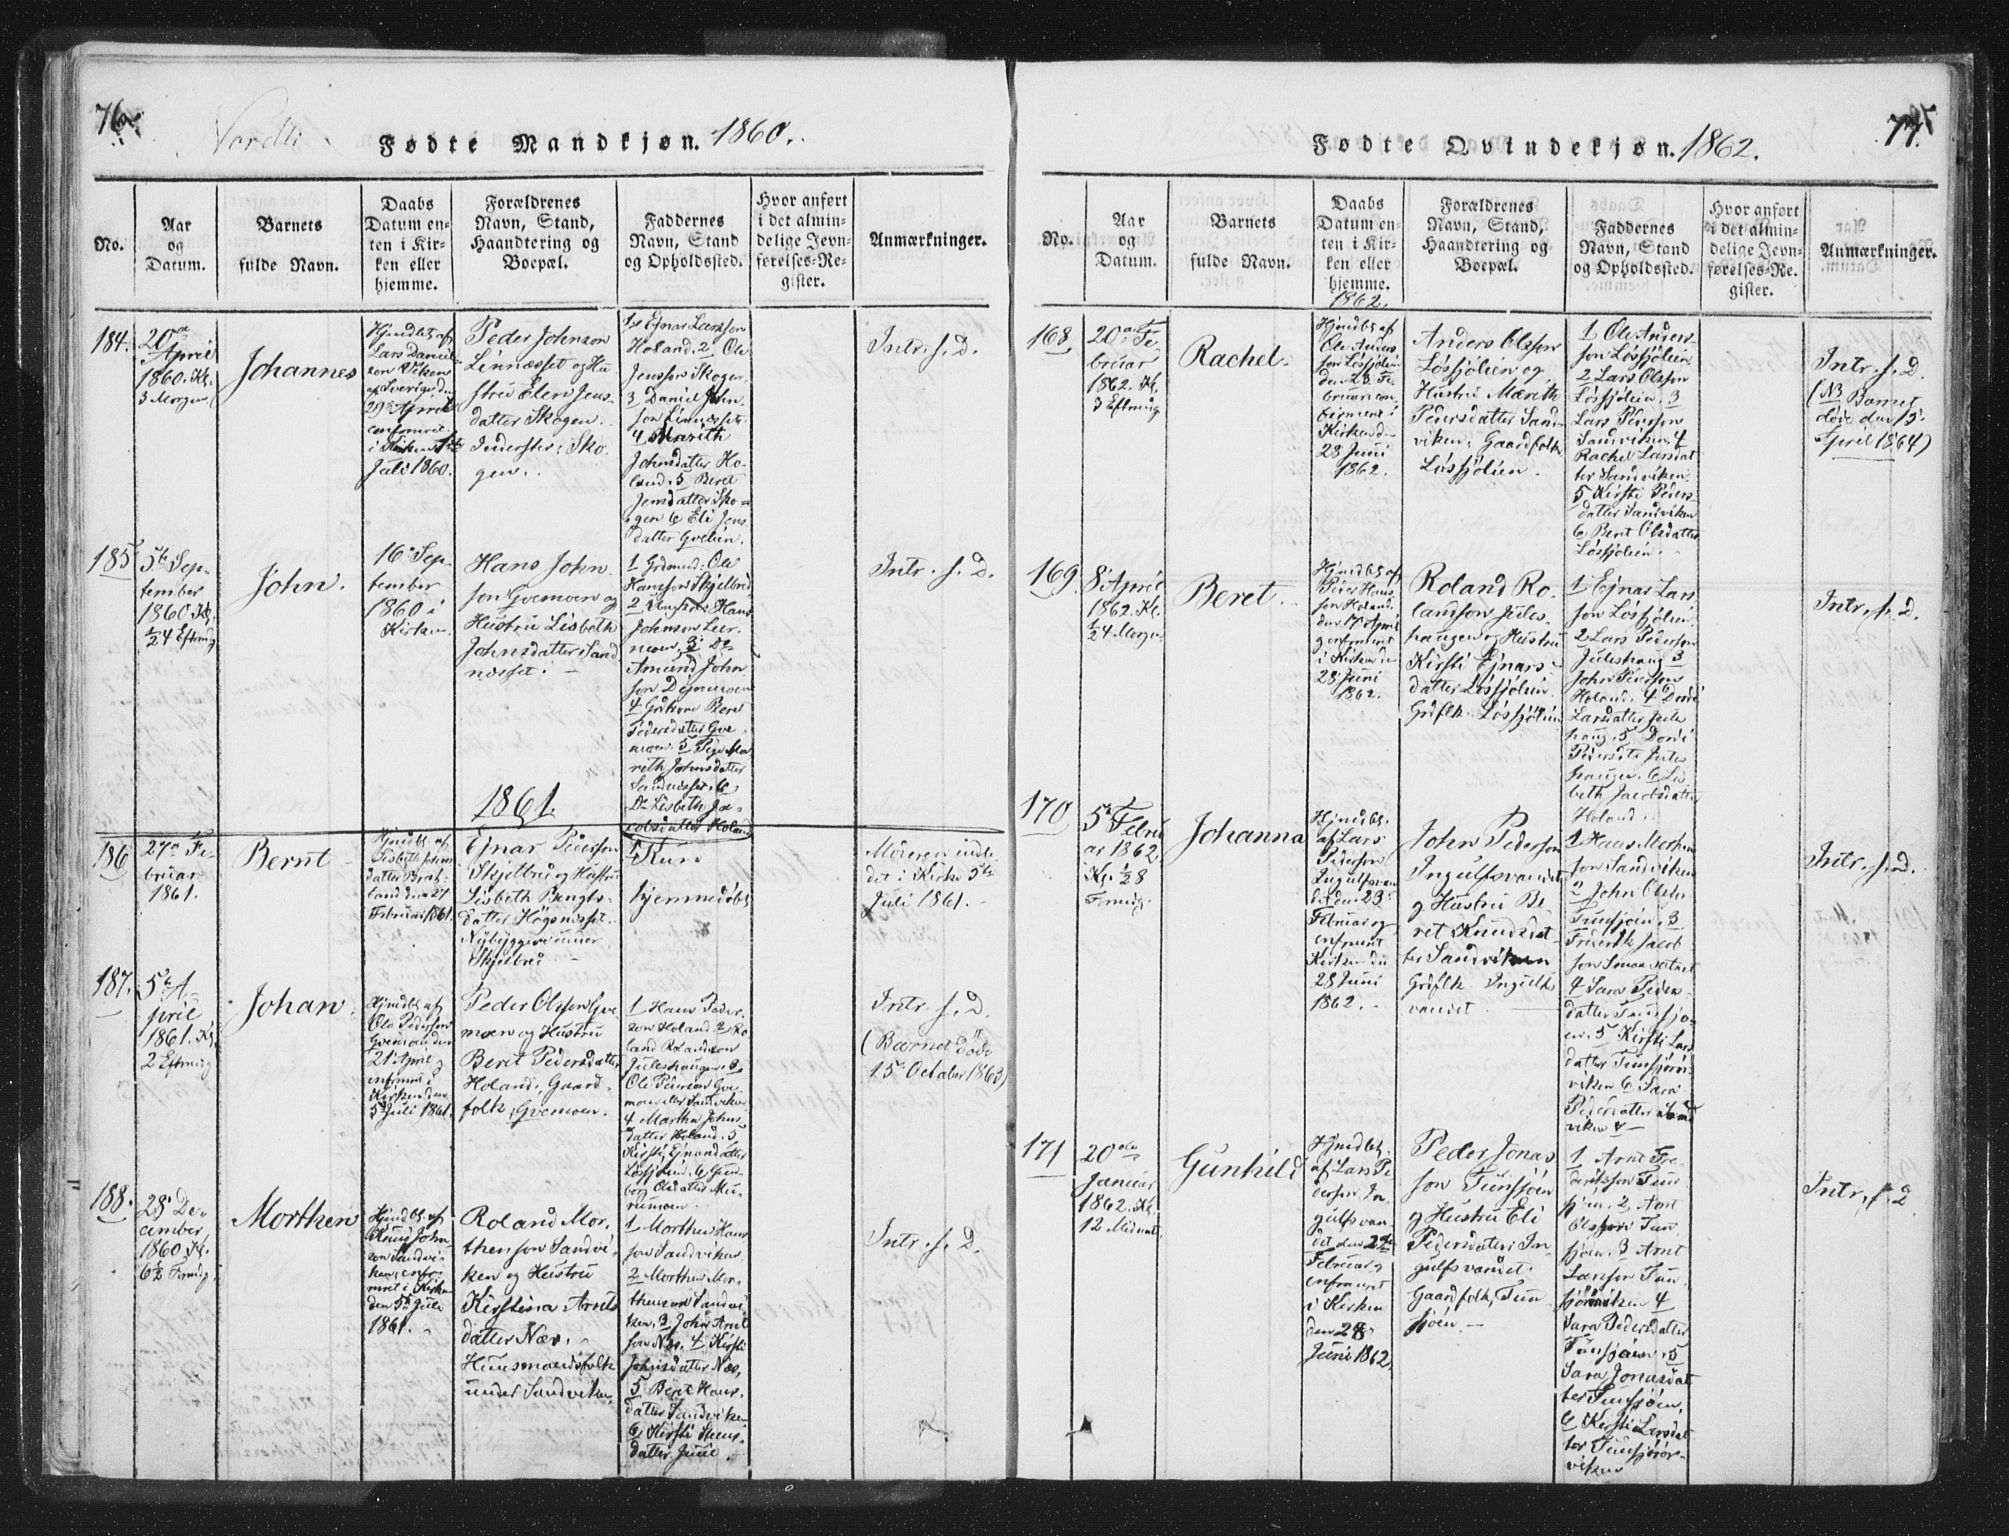 76
Nordli
Fødte Mandkjøn. 1860.
No.
Aar
og
Datum.
Barnets
fulde Navn.
Daabs
Datum en-
ten i Kir-
ken eller
hjemme.
Forældrenes
Navn, Stand,
Haandtering og
Boepæl.
Faddernes
Navn, Stand
og Opholdssted.
Hvor anført
i det almin-
delige Jevn-
førelses-Re-
gister.
Anmærkninger.
184.
20de
April
1860. Kl.
3 Morgen
Johannes
Hjmdbt af
Lars Daniel-
son Viken
af Sverige d.
29de April
confirmeret
i Kirken 1ste
Juli 1860.
Peder Johnson
Linnæsset og Hu
stru Elen Jens-
datter Skogen.
Inderster, Sko-
gen.
1 Ejnar Larsson
Holand. 2 Ole
Jensson Skogen
3 Daniel John
son Linnæsset
4 Marith
Johnsdatter Ho-
land. 5 Beret
Jensdatter Sko-
gen 6 Eli Jens
datter Gvelien.
Intr. f. D.
185
5te Sep-
tember
1860 Kl.
½4 Eftmg
John.
16 Sep-
tember
1860 i
Kirken
Hans John-
son Gvemoen og
Hustru Lisbeth
Johnsdatter Sand
næsset.
1 Grdmnd: Ole
Hansson Skjelbred
2 Hans
Johnson Leer-
moen, 3 Do
Amund John
son Dejmmoen
4 Grdkone Beret
Pedersdatter Gve
moen. 5 Pige Ma
reth Johnsdatter
Sandnæsset. 6
Do Lisbeth Ja-
cobsdatter Holand
Intr. f. D.
1861.
186
27de Fe-
bruar
1861.
Bernt
Hjmdbt af
Lisbeth Johns
datter
land den 27
Februar 1861.
Ejnar Pederson
Skjelbred og Hustru
Lisbeth Bengts-
datter Høgnæsset.
Nybyggere under
Skjelbred
Kun
hjemmedøbt
Moderen indle-
det i Kirke 5te
Juli 1861.
187.
5te A-
pril
1861. Kl.
2 Eftmg
Johan.
Hjmdbt af
Ole Pederson
Gvemoen den
21 April
confirm: i
Kirken den
5te Juli 1861.
Peder Olsson Gve
moen og Hustru
Beret Pedersdatter
Holand. Gaard-
folk, Gvemoen.
1 Hans Peder-
son Holand 2 Ro
land Rolandson
Juleshaugen 3
Ole Pederson Gve-
moen eller Sandviken
4 Martha Johns-
datter Holand. 5
Kirsti Ejnarsdatter
Løsfjølien. 6 Gun-
bor Olsdatter Mu-
rumoen
Intr. f. D.
(Barnet døde
15 October 1863)
188.
28 De-
cember
1860 Kl.
6½ Formg.
Morthen
Hjmdbt af
Knud John-
son Sandvi-
ken, confir-
meret i Kirken
den 5te Juli
1861.
Roland Mor-
thenson Sandvi-
ken og Hustru
Kirstina Arnts
datter Næs.
Huusmandsfolk
under Sandviken
1 Morthen Hans
son Sandviken
2 Morthen Mor-
thenson Sandvi
ken. 3 John Arnt
son Næs. 4 Kirsti
Johnsdatter Næs,
5 Beret Hans-
datter Sandviken
6 Kirsti Steens-
datter Juul.
Intr. f. D.
77.
Fødte Qvindekjøn. 1862.
No.
Aar
og
Datum.
Barnets
fulde Navn.
Daabs
Datum en-
ten i Kir-
ken eller
hjemme.
Forældrenes
Navn, Stand,
Haandtering og
Boepæl.
Faddernes
Navn, Stand
og Opholdssted.
Hvor anført
i det almin-
delige Jevn-
førelses-Re-
gister.
Anmærkninger.
1862.
168
20de Fe-
bruar
1862. Kl.
3 Eftmg
Rachel.
Hjmdbt af
Ole Anders
son Løsfjølien
den 23 Fe-
bruar con-
firmeret i
Kirken d.
28 Juni
1862.
Anders Olsson
Løsfjølien og
Hustru Mareth
Pedersdatter Sand-
viken, Gaardfolk
Løsfjølien.
1 Ole Anders-
son Løsfjølien
2 Lars Olsson
Løsfjølien. 3
Lars Pederson
Sandviken. 4
Rachel Larsdat
ter Sandviken.
5 Kirsti Peders-
datter Sandviken
6 Beret Olsdatter
Løsfjølien.
Intr. f. D.
(NB Barnet
døde den 15
April 1864)
169.
8 April
1862. Kl.
½4 Morgen
Beret.
Hjmdbt af
Peder Hans
son Holand.
den 17 April
og confirmeret
i Kirken den
28 Juni
1862.
Roland Ro-
landson Jules-
haugen og Hustru
Kirsti Ejnars-
datter Løsfjølien
Grdflk. Løsfjølien
1 Ejnar Lars
son Løsfjølien.
2 Lars Pederson
Juleshaug 3
John Pederson
Holand. 4 Dordi
Larsdatter Jule
haug. 5 Dordi
Pedersdtr Jules
haugen. 6 Lis
beth Jacobsdatter
Holand.
Intr. f. D.
170
5te Febru
ar 1862.
Kl. ½8
Formg.
Johanna
Hjmdbt.
af Lars
Pederson
Ingulfsvan
det den 23
Februar og
confirmeret
Kirken den
28 Juni
1862.
John Pederson
Ingulfsvandet
og Hustru Be
ret Knudsdat-
ter Sandviken
Grdflk. Ingulfs
vandet
1 Hans Morthen
son Sandviken
2 John Olsson
Tunsjøen. 3
Frederik Jacob
son Smaavatnet
4 Sara Peders-
datter Tunsjø-
en. 5 Kirsti Lars
datter Tunsjørs-
viken 6 Sara
Pedersdatter Sand
viken
Intr. f. D.
171
20de
Januar
1862. Kl.
12 Midnat.
Gunhild
Hjmdbt.
af Lars Pe
derson In-
gulfsvan-
det den 23de
Februar og
confirmeret
i Kirken
den 28
Juni 1862.
Peder Jonas
son Tunsjøen
og Hustru Eli
Pedersdatter In-
gulfsvandet.
Gaardfolk, Tun
sjøen.
1 Arnt Fre-
deriksson Tun
sjøen. 2 Arnt
Olsson Tun
sjøen. 3 Arnt
Larsson Tun
sjørviken 4
Sara Pedersdatter
Tunsjøen. 5
Sara Jonasdat
ter Tunsjøen.
6 Kirsti Larsdat
ter Tunsjørs-
viken
Intr. f. D